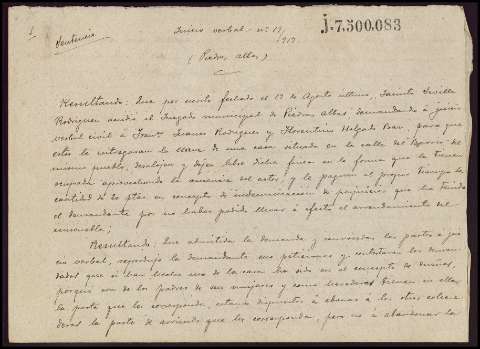 1
Sentencia
Juicio verbal nº 19
1919
J.7.500.083
(Piedras albas)
Resultando: Que por escrito fechado el 19 de Agosto último, Jacinto Sevilla
Rodriguez acudió al Juzgado municipal de Piedras Albas, demandando á juicio
verbal civil á Franco Rodriguez y Florentino Holgado, para que
estos le entregaran la llave de una casa situada en la calle del Barrio del
mismo pueblo, desalojen y dejen libre dicha finca en la forma que la tienen
ocupada aprovechando la ausencia del actor, y le paguen al propio tiempo la
cantidad de ptas en concepto de indemnizacion de perjuicios que ha tenido
el demandante por no haber podido llevar á efecto el arrendamiento del
inmueble;
Resultando: Que admitida la demanda y convocadas las partes á jui
cio verbal, reprodujo la demandante sus peticiones y contestaron los deman
dados que si han hecho uso de la casa ha sido en el concepto de dueños,
porque son de los padres de sus mujeres y como herederos tienen en ella
la parte que les corresponda, estando dispuestos á abonar á los otros cohere
deros la parte de arriendo que les corresponda, pero no á abandonar la